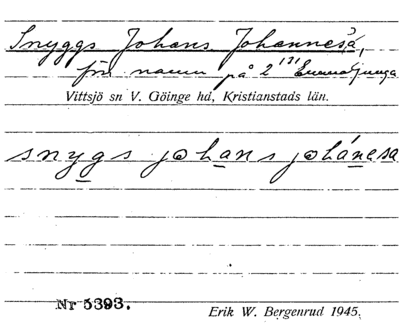 Snyggs Johans Johannesa,
för namn på 2 171 Emmaljunga
Vittsjö sn V. Göinge hd, Kristianstads län.
snygs johans johánesa
Nr 5393.
Erik W. Bergenrud 1945.